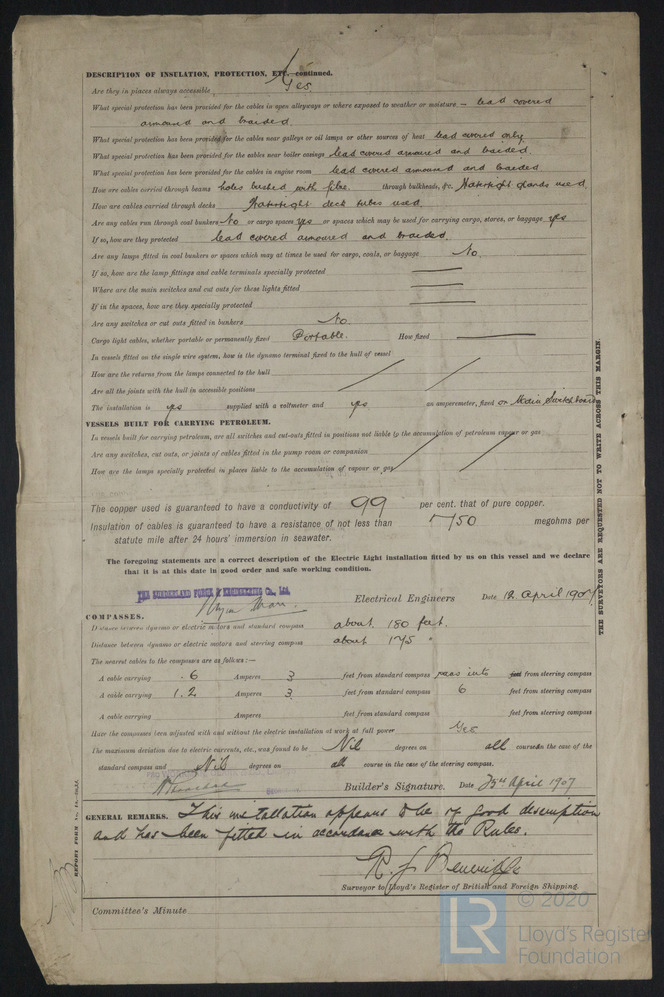 DESCRIPTION OF INSULATION, PROTECTION, ETC. continued.
Are they in places always accessible Yes.
What special protection has been provided for the cables in open alleyways or where exposed to weather or moisture – lead covered
armoured and braided
What special protection has been provided for the cables near galleys or oil lamps or other sources of heat lead covered only
What special protection has been provided for the cables near boiler casings lead covered armoured and braided.
What special protection has been provided for the cables in engine room lead covered armoured and braided
How are cables carried through beams holes bushed with fibre. through bulkheads, &c. Watertight glands used
How are cables carried through decks Watertight deck tubes used.
Are any cables run through coal bunkers No or cargo spaces yes or spaces which may be used for carrying cargo, stores, or baggage yes
If so, how are they protected lead covered armoured and braided.
Are any lamps fitted in coal bunkers or spaces which may at times be used for cargo, coals, or baggage No.
If so, how are the lamp fittings and cable terminals specially protected
Where are the main switches and cut outs for these lights fitted
If in the spaces, how are they specially protected
Are any switches or cut outs fitted in bunkers No.
Cargo light cables, whether portable or permanently fixed Portable. How fixed
In vessels fitted on the single wire system, how is the dynamo terminal fixed to the hull of vessel
How are the returns from the lamps connected to the hull
Are all the joints with the hull in accessible positions
The installation is yes supplied with a voltmeter and yes an amperemeter, fixed on Main Switchboard
VESSELS BUILT FOR CARRYING PETROLEUM.
In vessels built for carrying petroleum, are all switches and cut-outs fitted in positions not liable to the accumulation of petroleum vapour or gas
Are any switches, cut outs, or joints of cables fitted in the pump room or companion
How are the lamps specially protected in places liable to the accumulation of vapour or gas
The copper used is guaranteed to have a conductivity of 99 per cent. that of pure copper.
Insulation of cables is guaranteed to have a resistance of not less than 750 megohms per
statute mile after 24 hours' immersion in seawater.
The foregoing statements are a correct description of the Electric Light installation fitted by us on this vessel and we declare
that it is at this date in good order and safe working condition.
THE SUNDERLAND FORGE & ENGINEERING Co., Ltd.
Electrical Engineers Date 12 April 1907
COMPASSES.
Distance between dynamo or electric motors and standard compass about 180 feet.
Distance between dynamo or electric motors and steering compass about 175 "
The nearest cables to the compasses are as follows:—
A cable carrying .6 Amperes 3 feet from standard compass runs into feet from steering compass
A cable carrying 1.2 Amperes 3 feet from standard compass 6 feet from steering compass
A cable carrying Amperes feet from standard compass feet from steering compass
Have the compasses been adjusted with and without the electric installation at work at full power Yes
The maximum deviation due to electric currents, etc., was found to be Nil degrees on all courses in the case of the
standard compass and Nil degrees on all course in the case of the steering compass.
Builder's Signature. Date 23rd April 1907
GENERAL REMARKS. This installation appears to be of good description
and has been fitted in accordance with the Rules.
Surveyor to Lloyd's Register of British and Foreign Shipping.
Committee's Minute
THE SURVEYORS ARE REQUESTED NOT TO WRITE ACROSS THIS MARGIN.
© 2020
LR
Lloyd's Register
Foundation